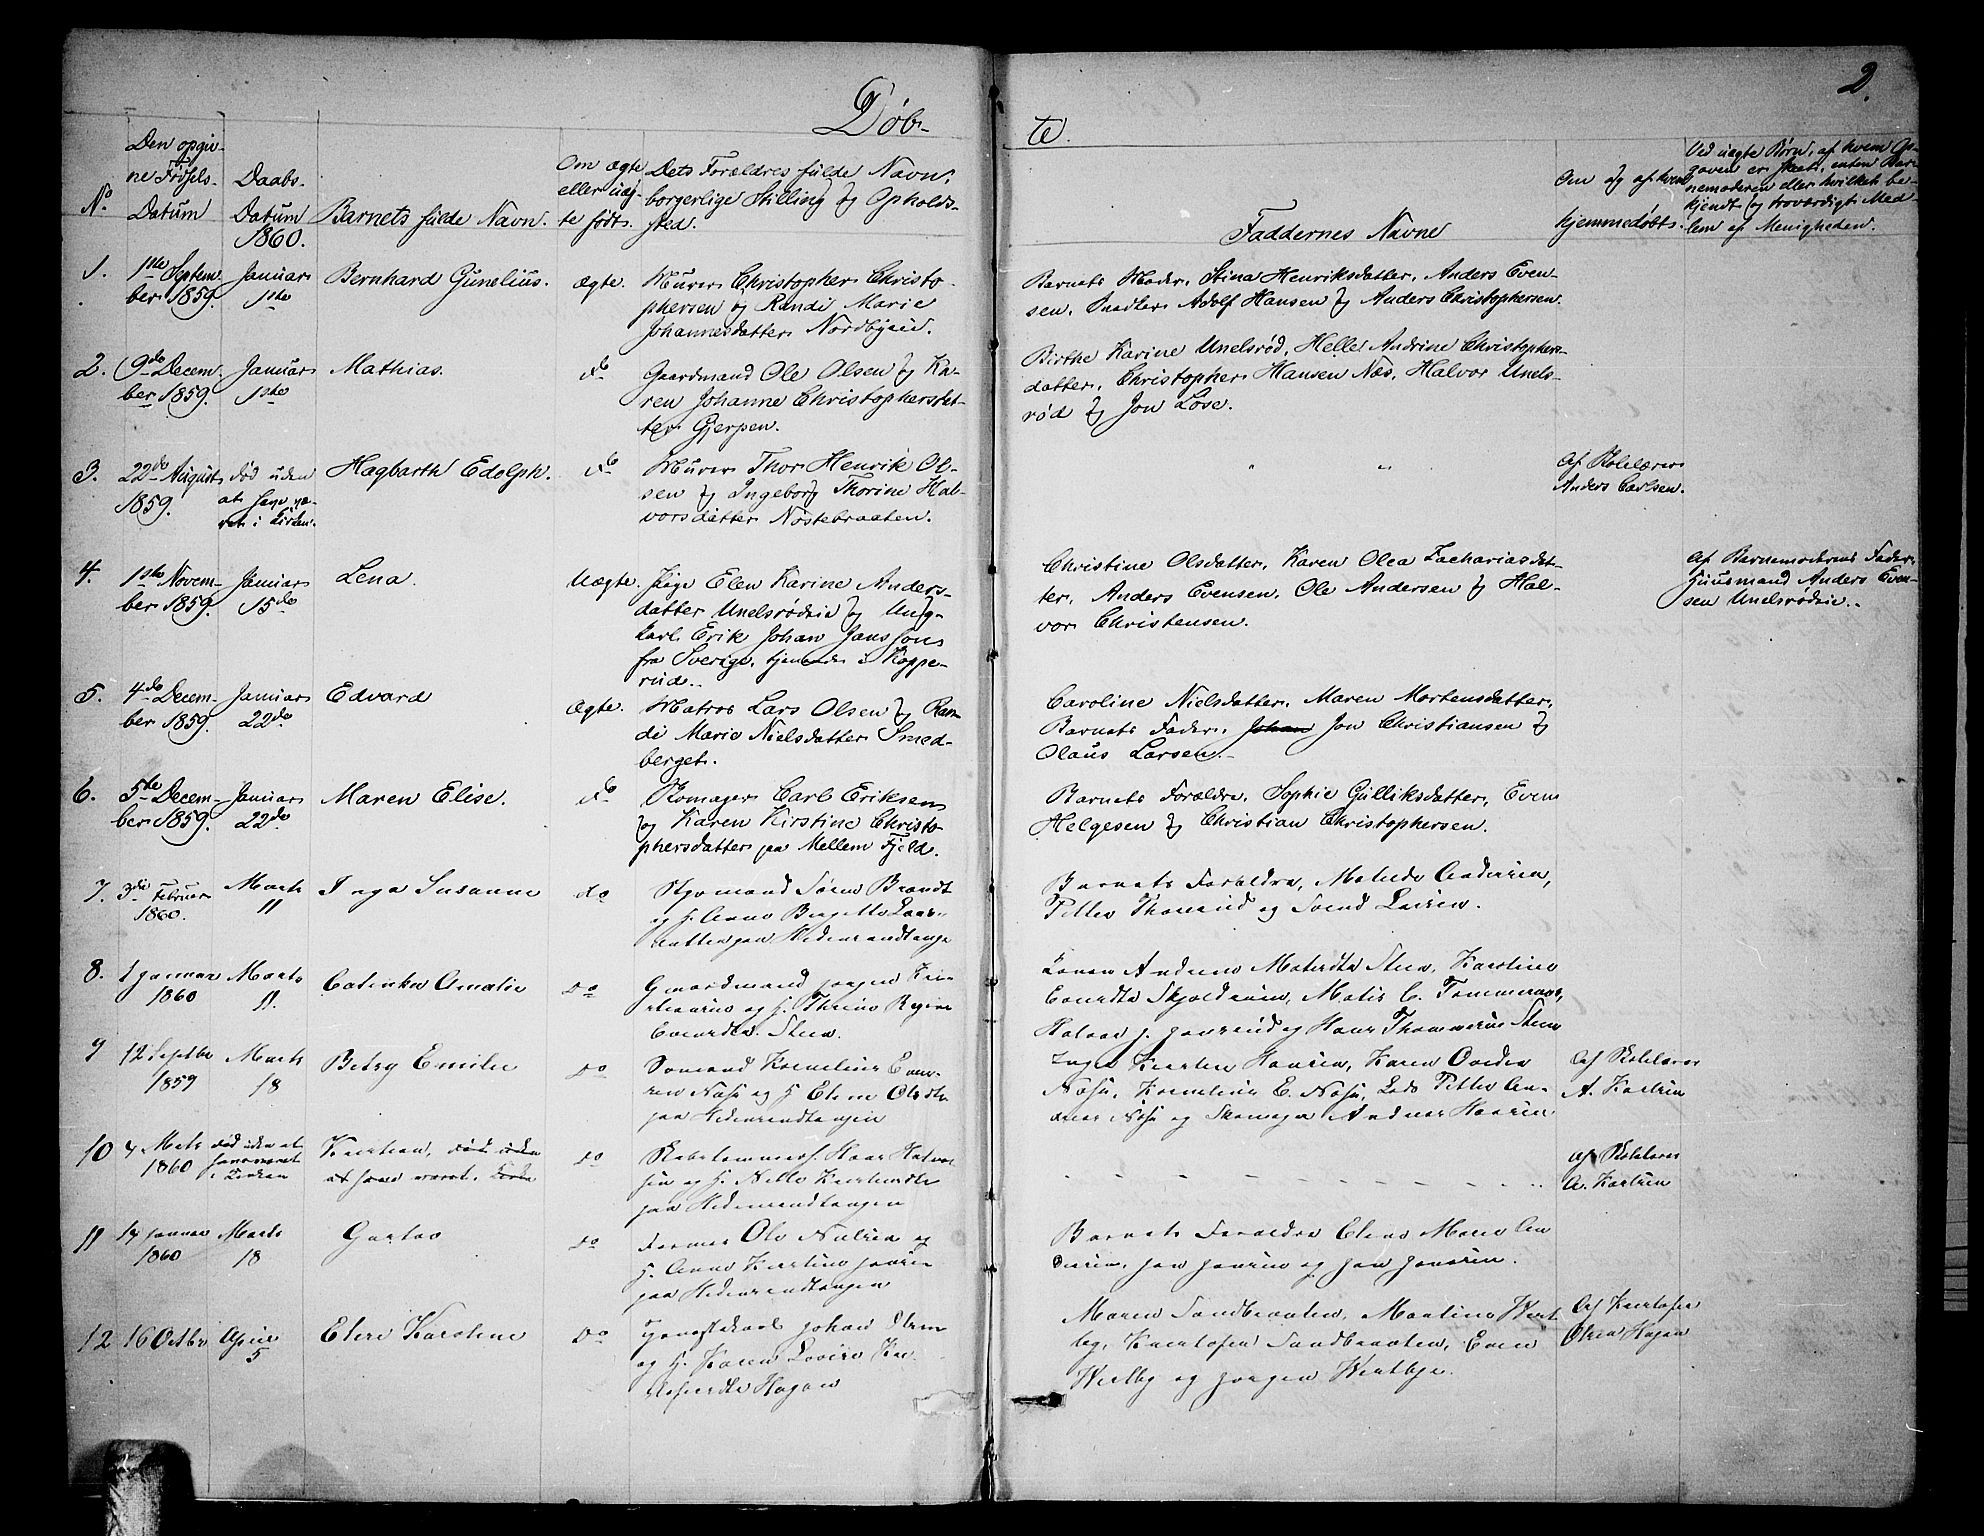 Døb-
te.
2.
No
Den opgiv-
ne Fødsels-
Datum
Daabs-
Datum
1860.
Barnets fulde Navn.
Om ægte
eller uæg-
te født.
Dets Forældres fulde Navn,
borgerlige Stilling og Opholds-
sted.
Faddernes Navne
Om og af hvem
hjemmedøbt.
Ved uægte Børn, af hvem Op-
gaven er skeet, enten Bar-
nemoderen eller hvilket be-
kjendt og troværdigt Med-
lem af Menigheden.
1.
1ste Septem-
ber 1859.
Januar
1ste
Bernhard Gunelius.
ægte.
Murer Christopher Christo-
phersen og Randi Marie
Johannesdatter Nordbyeie.
Barnets Moder, Stina Henriksdatter, Anders Even-
sen, Snedker Adolf Hansen og Anders Christophersen.
2.
9de Decem-
ber 1859.
Januar
1ste
Mathias.
do
Gaardmand Ole Olsen og Ka-
ren Johanne Christophersdat-
ter Gjerpen.
Birthe Karine Unelsrød, Helle Andrine Christophers-
datter, Christopher Hansen Næs, Halvor Unels-
rød og Jon Lose.
3.
22de August
1859.
død uden
at have væ-
ret i Kirken.
Hagbarth Edolph.
do
Murer Thor Henrik Ol-
sen og Ingeborg Thorine Hal-
vorsdatter Nøstebraaten.
" "
Af Skolelærer
Anders Carlsen.
4.
1ste Novem-
ber 1859.
Januar
15de
Lena.
Uægte.
Pige Elen Karine Anders-
datter Unelsrødeie og Ung-
karl Erik Johan Jansson
fra Sverige, tjenende i Koppe-
rud.
Christine Olsdatter, Karen Olea Zachariasdat-
ter, Anders Evensen, Ole Andersen og Hal-
vor Christensen.
Af Barnemoderens Fader,
Huusmand Anders Even-
sen Unelsrødeie.
5.
4de Decem-
ber 1859.
Januar
22de
Edvard
Ægte.
Matros Lars Olsen og Ran-
di Marie Nielsdatter Smed-
berget.
Caroline Nielsdatter, Maren Mortensdatter,
Barnets Fader, Johan Jon Christiansen og
Olaus Larsen.
6.
5te Decem-
ber 1859.
Januar
22de
Maren Elise.
do
Skomager Carl Eriksen
og Karen Kirstine Christo-
phersdatter paa Mellem Fjeld.
Barnets Forældre, Sophie Gulliksdatter, Even
Helgesen og Christian Christophersen.
7.
3die Februar
1860.
Marts
11
Inga Susanne
do
Styrmand Søren Brandt
og H. Anne Bergitte Lars-
datter paa Hedenrandtange
Barnets Forældre, Mathea Andersen,
Petter Thorerud og Svend Larsen.
8.
1 Januar
1860
Marts
11.
Catinka Amalie
Do
Gaardmand Jørgen Kri-
stiansen og H. Thrine Regine
Evensdtr. Steen.
Andrea Matisdtr Steen, Karoline
Evensdtr Skjoldnæs, Matis C. Tømmeraas,
Halvor J. og Hans Thommesen Steen
9
12 Septbr
1859
Marts
18
Betzy Emilie
Do
Sømand Kornelius Even-
sen Næss og H Elene Olsdtr
paa Hedenrandtangen
Inger Kirsten Hansen, Karen Ovedia
Næss, Kornelius E. Næss, Lods Petter An-
Næss og Skomager Andreas Hansen
Af Skolelærer
A. Karlsen
10
4 Marts
1860
død uden at
have været
i Kirken
Kristian, død uden
at have været i Kirken
Do
Skibstømmerm. Hans Halvor
sen og H. Nelle Kristensdtr
paa Hedenrandtangen
Af Skolelærer
A. Karlsen
11
14 Januar
1860
Marts
18
Gustav
Do
Ole Nielsen og
H. Anne Kirstine Jansen
paa Hedenrandtangen
Barnets Forældre Elene Marie An
dersen, Jan Jansen og Jan Jansen.
12
16 Octbr
April
5
Elen Karoline
Do
Johan Olsen
og H. Karen Lovise Kri
stofersdtr Hagen
Maren Sandbraaten, Martine West
by, Kristofer Sandbraaten, Even
Westby og Jørgen Westbye.
Af Kristofer
Olsen Hagen